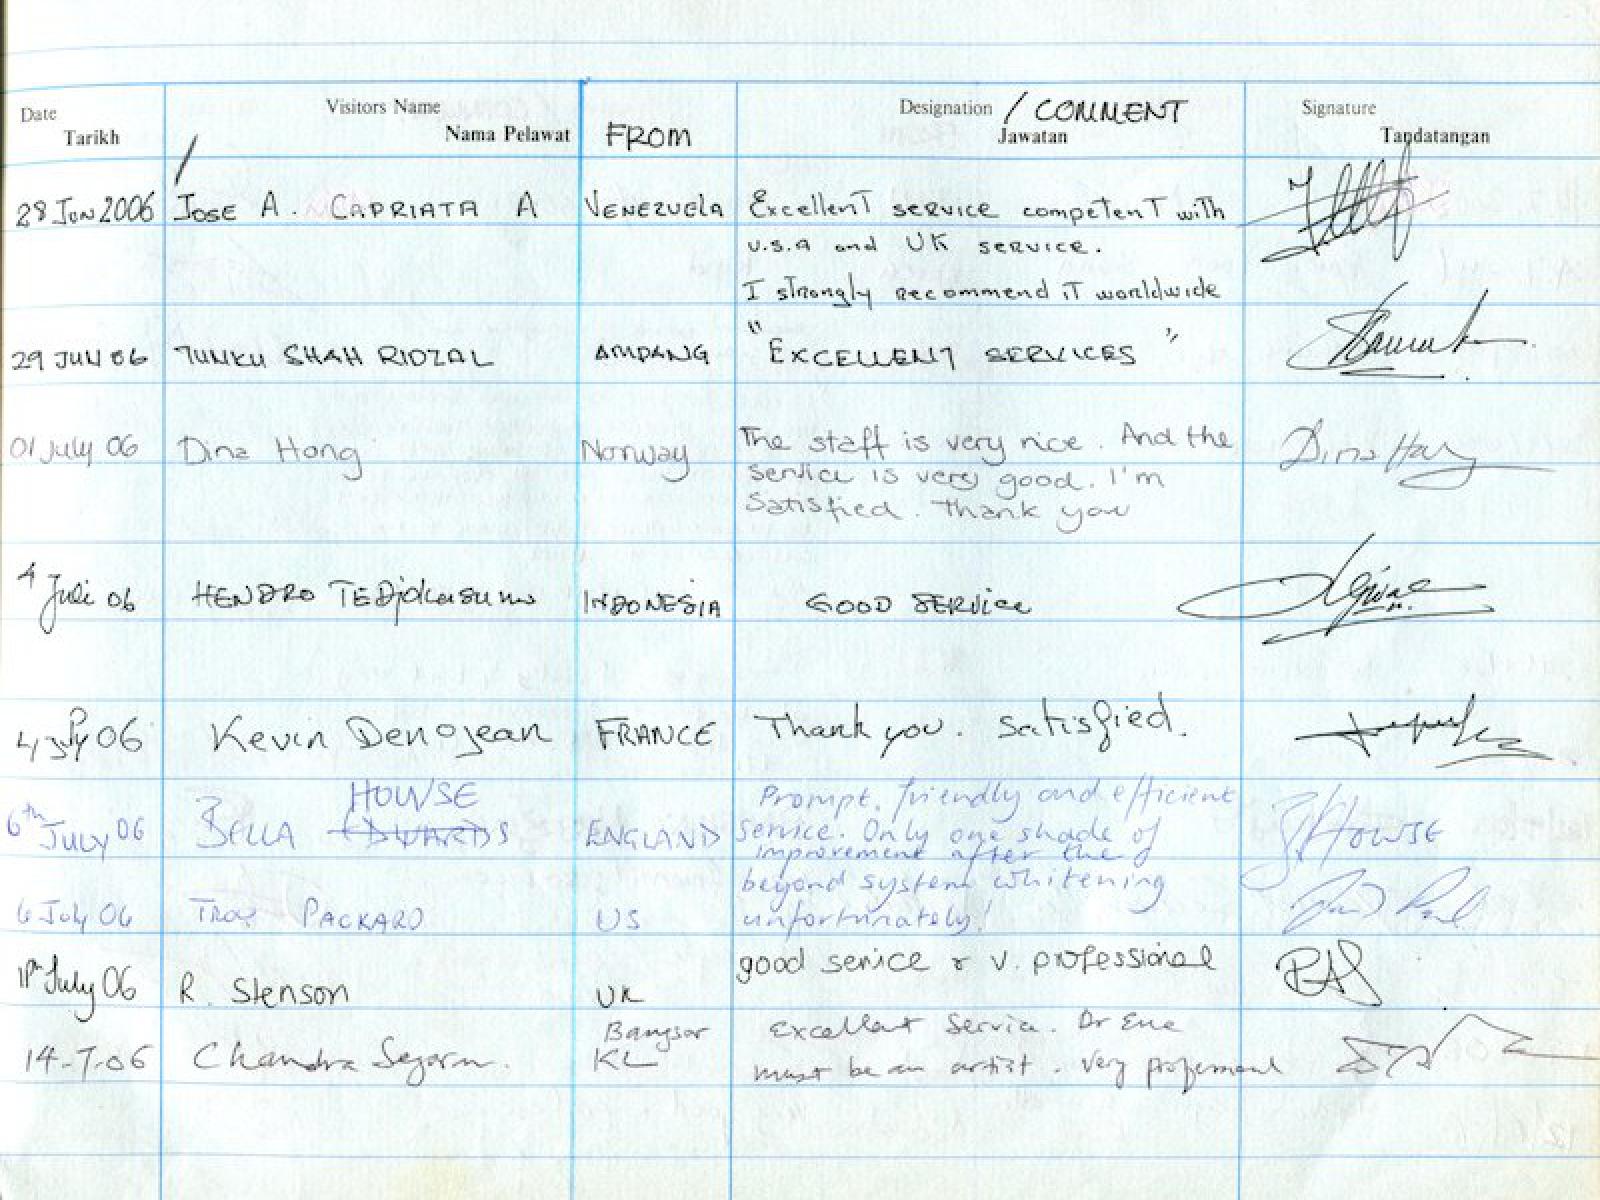 Date Visitors Name Designation / COMMENT Signature
Tarikh Nama Pelawat FROM Jawatan Tandatangan
28 Jun 2006 JOSE A. CAPRIATA A VENEZUELA Excellent service competent with
U.S.A and UK service.
I strongly recommend it worldwide
29 JUN 06 TUNKU SHAH RIDZAL AMPANG "EXCELLENT SERVICES"
01 July 06 Dina Hong Norway The staff is very nice. And the
service is very good. I'm
Satisfied. Thank you
Dina Hong
4 Juli 06 HENDRO TEDjokusumo INDONESIA GOOD SERVICE
4 July 06 Kevin Denojean FRANCE Thank you. Satisfied.
HOWSE
6th JULY 06 BELLA EDWARDS ENGLAND Prompt, friendly and efficient
service. Only one shade of
improvement after the
beyond system whitening
unfortunately!
B HOWSE
6 July 06 PACKARD US
11th July 06 R. Stenson UK good service & v. professional
14-7-06 Chandra Segaran. Bangsar
KL
Excellent Service. Dr
must be an artist. Very professional